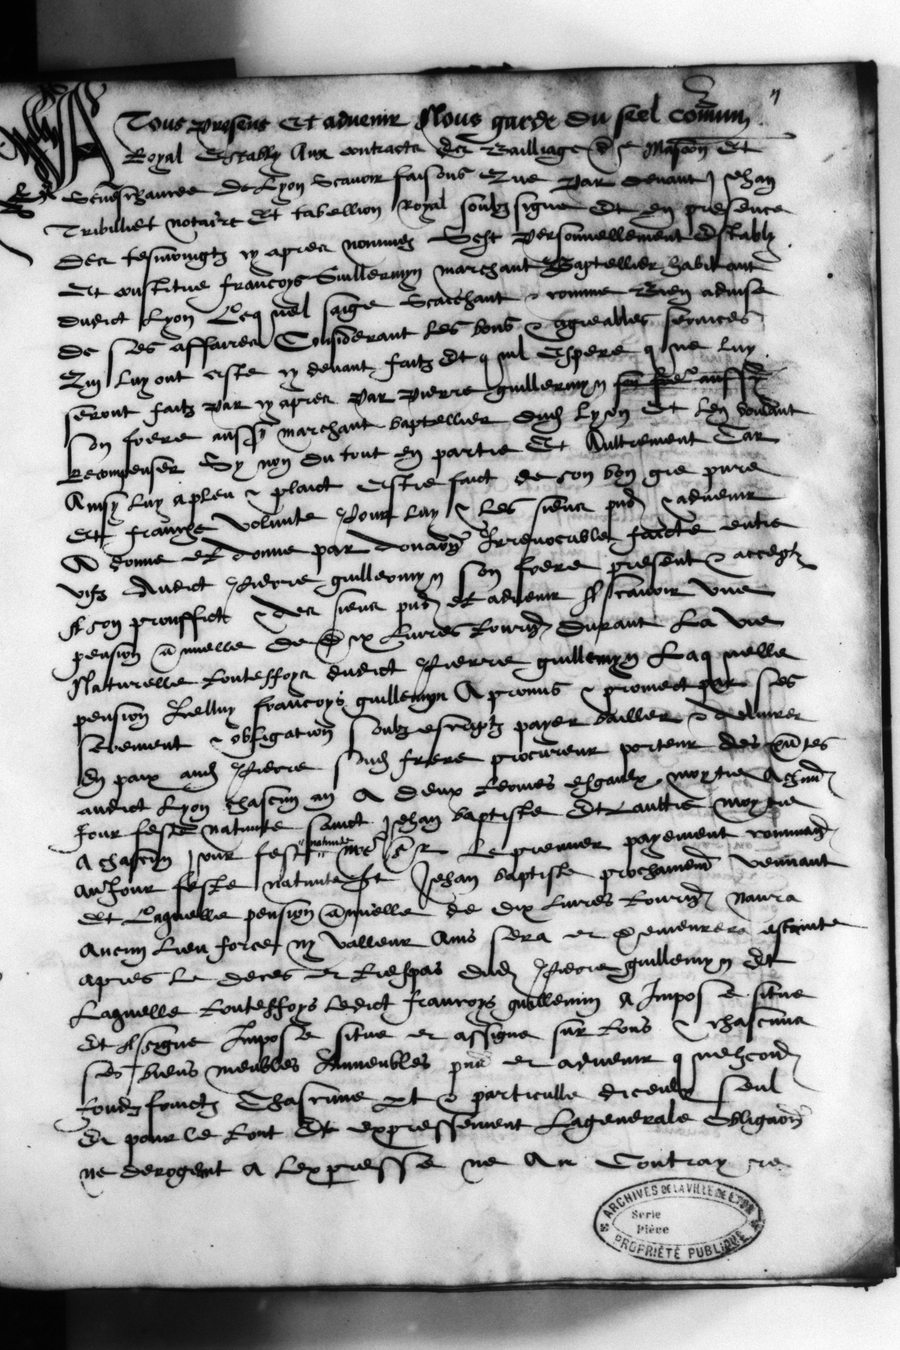 A Tous presens Et advenir Nous garde du seel commun
Royal Estably Aux contractz des Bailliage de Mascon Et
Seneschaucee De Lyon Scavoir faisons Que par devant Jehan
Tribilliet notaire Et tabellion Royal soubzsigne Et en presence
Des tesmoingtz cy apres nommez Sest personnellement Estably
Et constitue francoys Guillermyn marchant Baptellier habitant
dudict Lyon Lequel saige Scaichant & comme Bien advise
De ses affaires Considerant Les bons & agreables services
Qui luy ont este cy devant faitz Et quil Espere que luy
seront faitz par cy apres par Pierre guillermyn
son frere aussy marchant baptellier dud Lyon Et Len voulant
Recompenser Sy non du tout en partie Et Aultrement Car
Ainsy luy a pleu & plaict estre faict de son bon gre pure
Et franche volunte Pour luy & Les siens pns & advenir
A donne et donne par donaon Irrevocable faicte entre
vifz Audict Pierre guillermyn son frere present & acceptz
A son prouffict & des siens pns et advenir A scavoir une
pension annuelle de dix Livres tournz Durant La vie
Naturelle toutesfoys dudict Pierre guillermyn Laquelle
pension Icelluy francoys guillermyn A promis & promect par ses
serement & obligation soubz escriptz payer bailler & delivrer
En paix aud Pierre sond frere procureur porteur des pntes
audict Lyon chascun an A deux termes esgaulx moytie A chun
Jour feste nativite sainct Jehan baptiste Et laultre moytie
A chascun jour feste nativite nre sr Le premier payement commenz
au Jour feste nativite st Jehan baptiste prochainemt venant
Et Laquelle pension annuelle de dix Livres tournz naura
Aucun Lieu force ny valleur Ains sera et demeurera estaincte
apres le deces et trespas dud Pierre guillermyn Et
Laquelle toutesfoys ledict francoys guillermin A Impose situe
Et Assigne Impose situe et assigne sur tous & chascuns
ses biens meubles Immeubles pns et advenir quelzconqz
Chascune & particulle diceulx seul
Et pour le tout Et expressement La generale Obligaon
ne derogent A lexpresse ne Au Contrayre
ARCHIVES DE LA VILLE DE LYON
Serie
Pièce
PROPRIÉTÉ PUBLIQUE